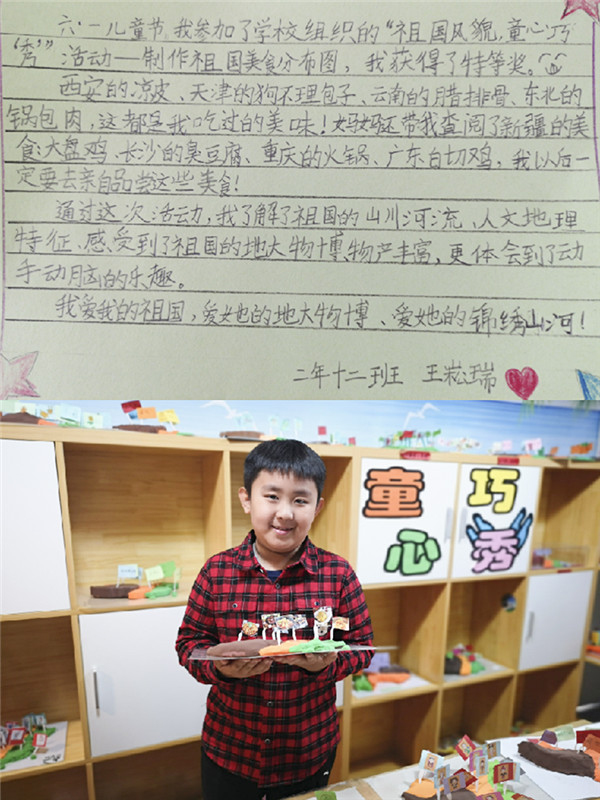 六·一儿童节,我参加了学校组织的“祖国风貌,童心巧
“秀”活动—制作祖国美食分布图,我获得了特等奖。
西安的凉皮、天津的狗不理包子、云南的腊排骨、东北的
锅包肉,这都是我吃过的美味!妈妈还带我查阅了新疆的美
食:大盘鸡、长沙的臭豆腐、重庆的火锅、广东白切鸡,我以后一
定要去亲自品尝这些美食!
通过这次活动,我了解了祖国的山川河流、人文地理
特征、感受到了祖国的地大物博、物产丰富,更体会到了动
手动脑的乐趣。
我爱我的祖国,爱她的地大物博、爱她的锦绣山河!
二年十二班 王崧瑞
童 巧
心 秀